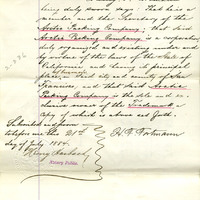 being duly sworn says: That he is a
member and the Secretary of the
Arctic Packing Company; that said
Arctic Packing Company is a corporation
duly organized and existing under and
by virtue of the laws of the State of
California and having its principal
place of business
in said city and county of San
Francisco, and that said Arctic
Packing Company is the sole and ex-
clusive owner of the Trademark a
copy of which is annexed hereto.
Subscribed and sworn
to before me this 21st
day of July 1884.
Notary Public